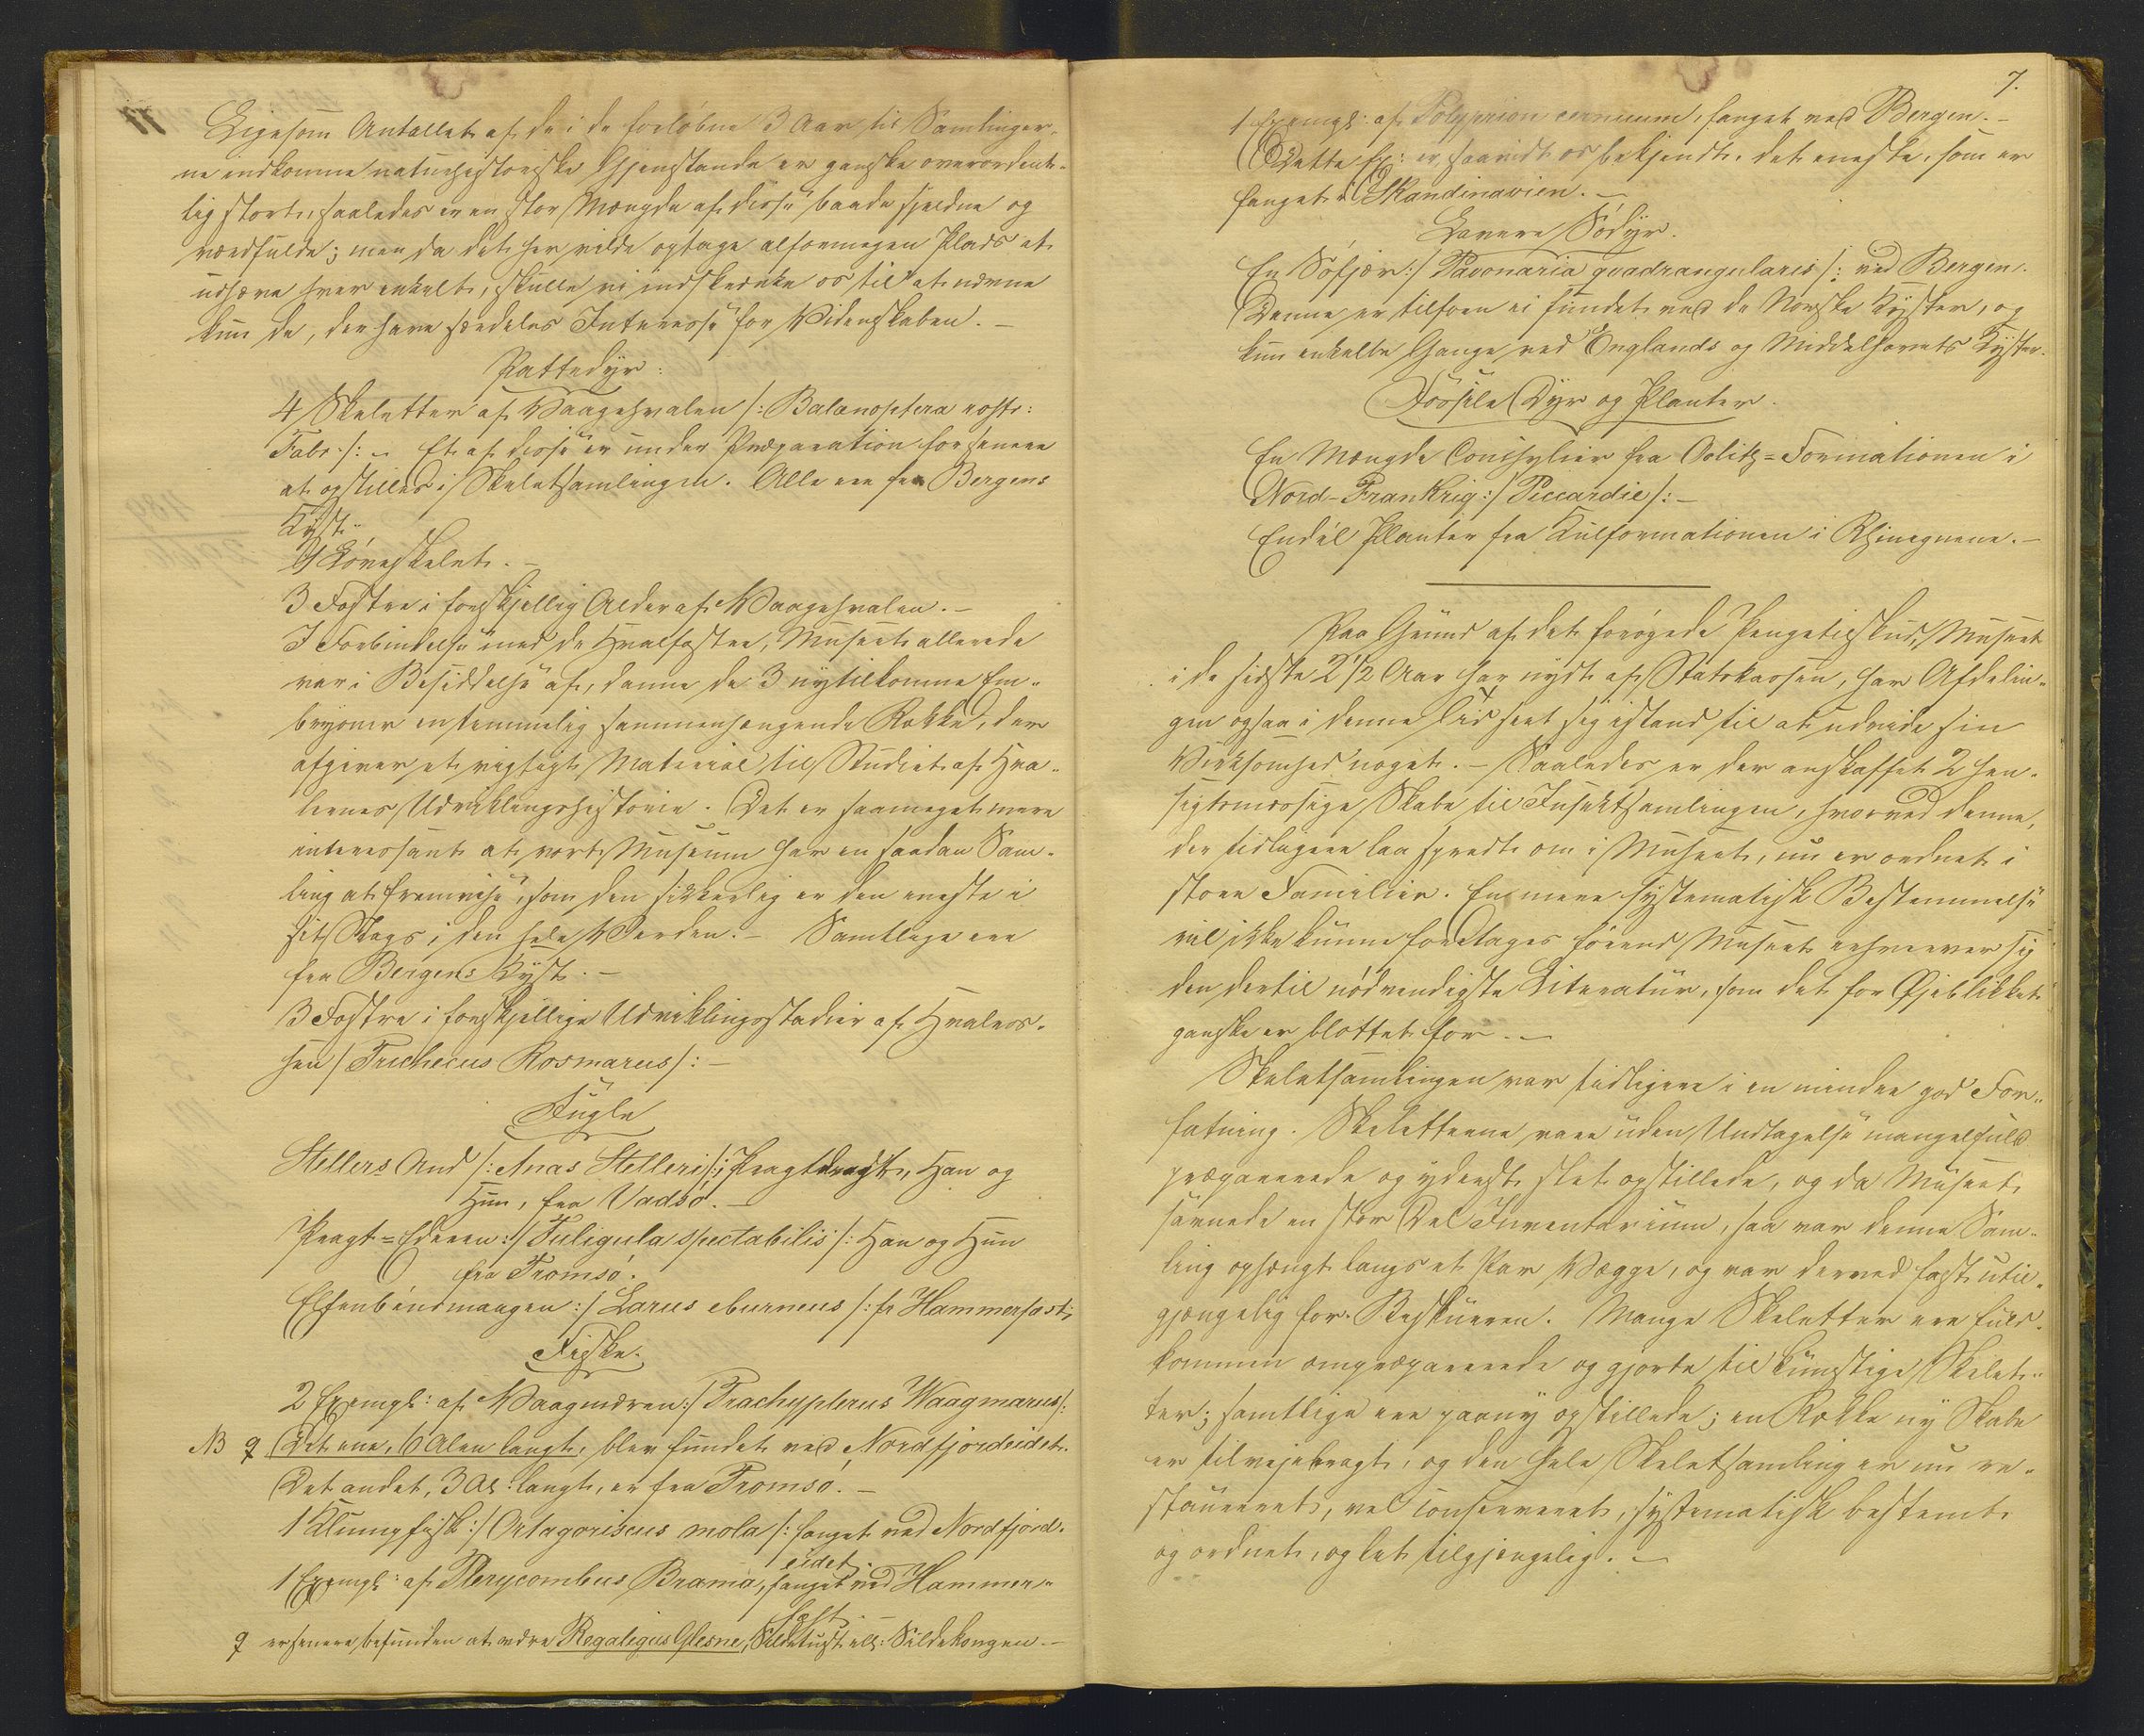 Ligesom Antallet af de i de forløbne 3 Aar til Samlinger-
ne indkomne naturhistoriske Gjenstande er ganske overordent-
lig stort, saaledes er en stor Mængde af disse baade sjeldne og
værdfulde; men da det her vilde optage alformegen Plads at
udhæve hver enkelt, skulle vi indskrænke os til at nævne
kun de, der have særdeles Interesse for Videnskaben. –
Pattedyr:
4 Skeletter af Vaagehvalen /: Balænoptera rostr:
Fabr. /: – Et af disse er under Præparation for senere
at opstilles i Skeletsamlingen. Alle ere fra Bergens
Kyst.
1 Løveskelet. –
3 Fostre i forskjellig Alder af Vaagehvalen. –
I Forbindelse med de Hvalfostre, Museet allerede
var i Besiddelse af, danne de 3 nytilkomne Em-
bryoner en temmelig sammenhængende Række, der
afgiver et vigtigt Material til Studiet af Hva-
lernes Udviklingshistorie. Det er saameget mere
interessant at vort Museum har en saadan Sam-
ling at fremvise, som den sikkerlig er den eneste i
sit Slags i den hele Verden. – Samtlige ere
fra Bergens Kyst. –
3 Fostre i forskjellige Udviklingsstadier af Hvalros-
sen /: Trichecus Rosmarus /: –
Fugle
Stellers And /: Anas Stelleri /: Pragtdragt, Han og
Hun, fra Vadsø. –
Pragt=Ederen :/ Fuligula spectabilis /: Han og Hun
fra Tromsø.
Elfenbensmaagen :/ Larus eburneus /: fr Hammerfest
Fiske.
2 Exempl: af Vaagmæren :/ Trachypterus Waagmarus /:
NB Det ene, 6 Alen langt, blev fundet ved Nordfjordeidet.
Det andet, 3 Al: langt, er fra Tromsø. –
1 Klumpfisk :/ Ortagoriscus mola /: fanget ved Nordfjord-
eidet.
1 Exempl: af Pterycombus Brama, fanget ved Hammer-
fest.
er senere befunden at være Regalegus Glesne, Sildetust ell: Sildekongen. –
7.
1 Exempl: af Polyprion cernium, fanget ved Bergen. –
Dette Ex: er saavidt os bekjendt, det eneste, som er
fanget i Skandinavien. –
Lavere Sødyr.
En Søfjær :/ Pavonaria quadrangularis /: ved Bergen.
Denne er tilforn ei fundet ved de Norske Kyster, og
kun enkelte Gange ved Englands og Middelhavets Kyster.
Fossile Dyr og Planter.
En Mængde Conchylier fra Oolith=Formationen i
Nord-Frankrig :/ Piccardie /: –
Endel Planter fra Kulformationen i Rhinegnene. –
Paa Grund af det forøgede Pengetilskud, Museet
i de sidste 2 1/2 Aar har nydt af Statskassen, har Afdelin-
gen ogsaa i denne Tid seet sig istand til at udvide sin
Virksomhed noget. – Saaledes er der anskaffet 2 hen-
sigtsmæssige Skabe til Insektsamlingen, hvorved denne,
der tidligere laa spredt om i Museet, nu er ordnet i
store Familier. En mere systematisk Bestemmelse
vil ikke kunne foretages førend Museet erhverver sig
den dertil nødvendigste Literatur, som det for Øjeblikket
ganske er blottet for. –
Skeletsamlingen var tidligere i en mindre god For-
fatning. Skeletterne vare uden Undtagelse mangelfuld
præparerede og yderst slet opstillede, og da Museet
savnede en stor Del Inventarium, saa var denne Sam-
ling ophængt langs et Par Vægge, og var derved fast util-
gjængelig for Beskueren. Mange Skeletter ere fuld-
kommen ompræparerede og gjorte til kunstige Skelet-
ter; samtlige ere paany opstillede; en Række ny Skabe
er tilvejebragt, og den hele Skeletsamling er nu re-
staureret, vel conserveret, systematisk bestemt
og ordnet, og let tilgjængelig. –